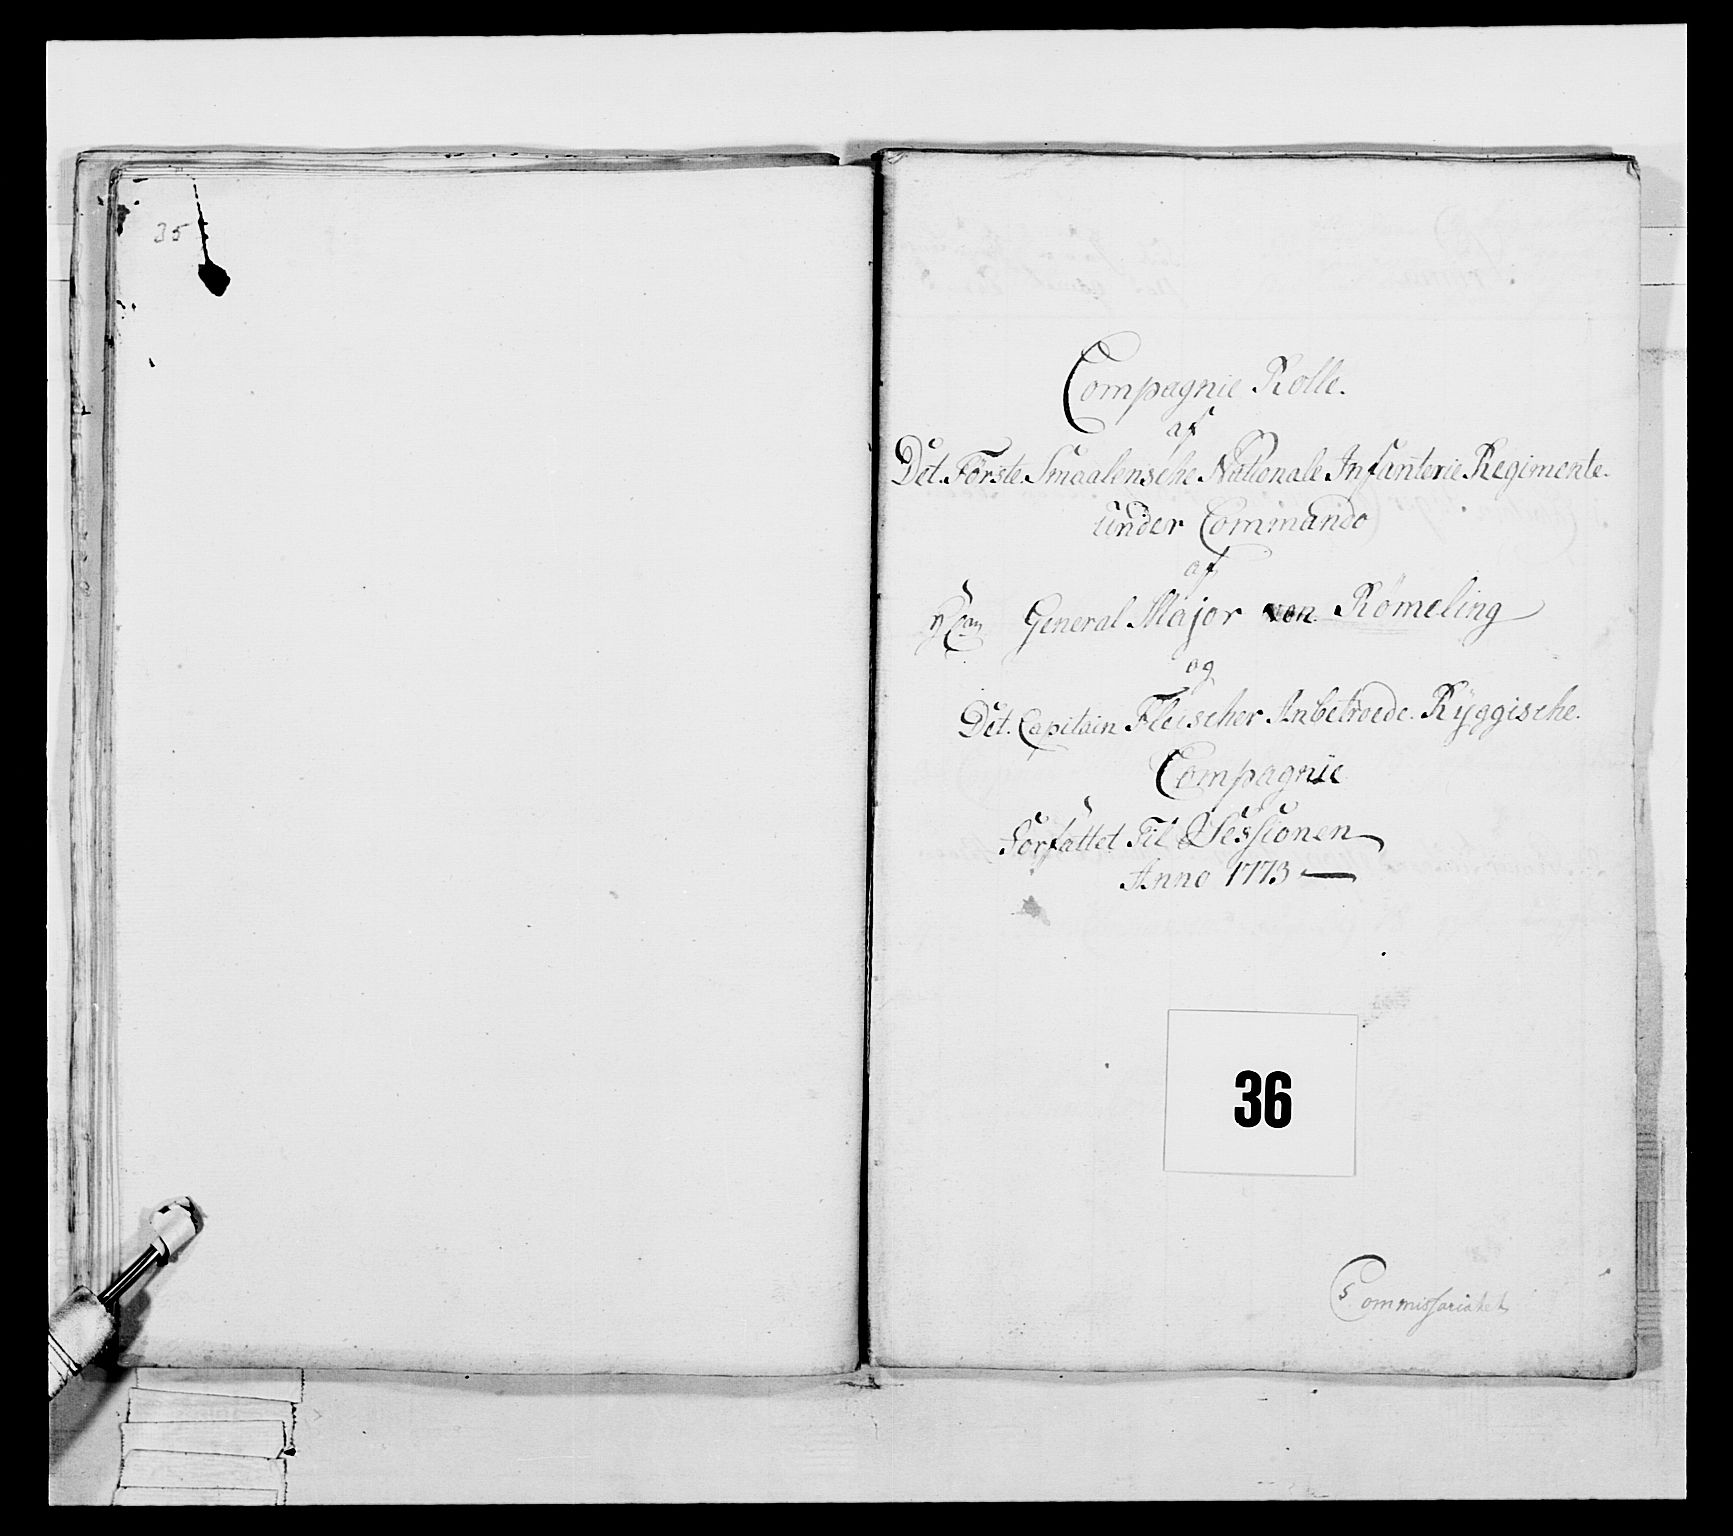 35
Compagnie Rolle.
af
Det Første Smaalensche Nationale Infanterie Regimente.
under Commando
af
General Major von Römeling
og
Det Capitain Fleischer Anbetroede Ryggische.
Compagnie
Forfattet til Sessionen
Anno 1773
36
Commissariatet